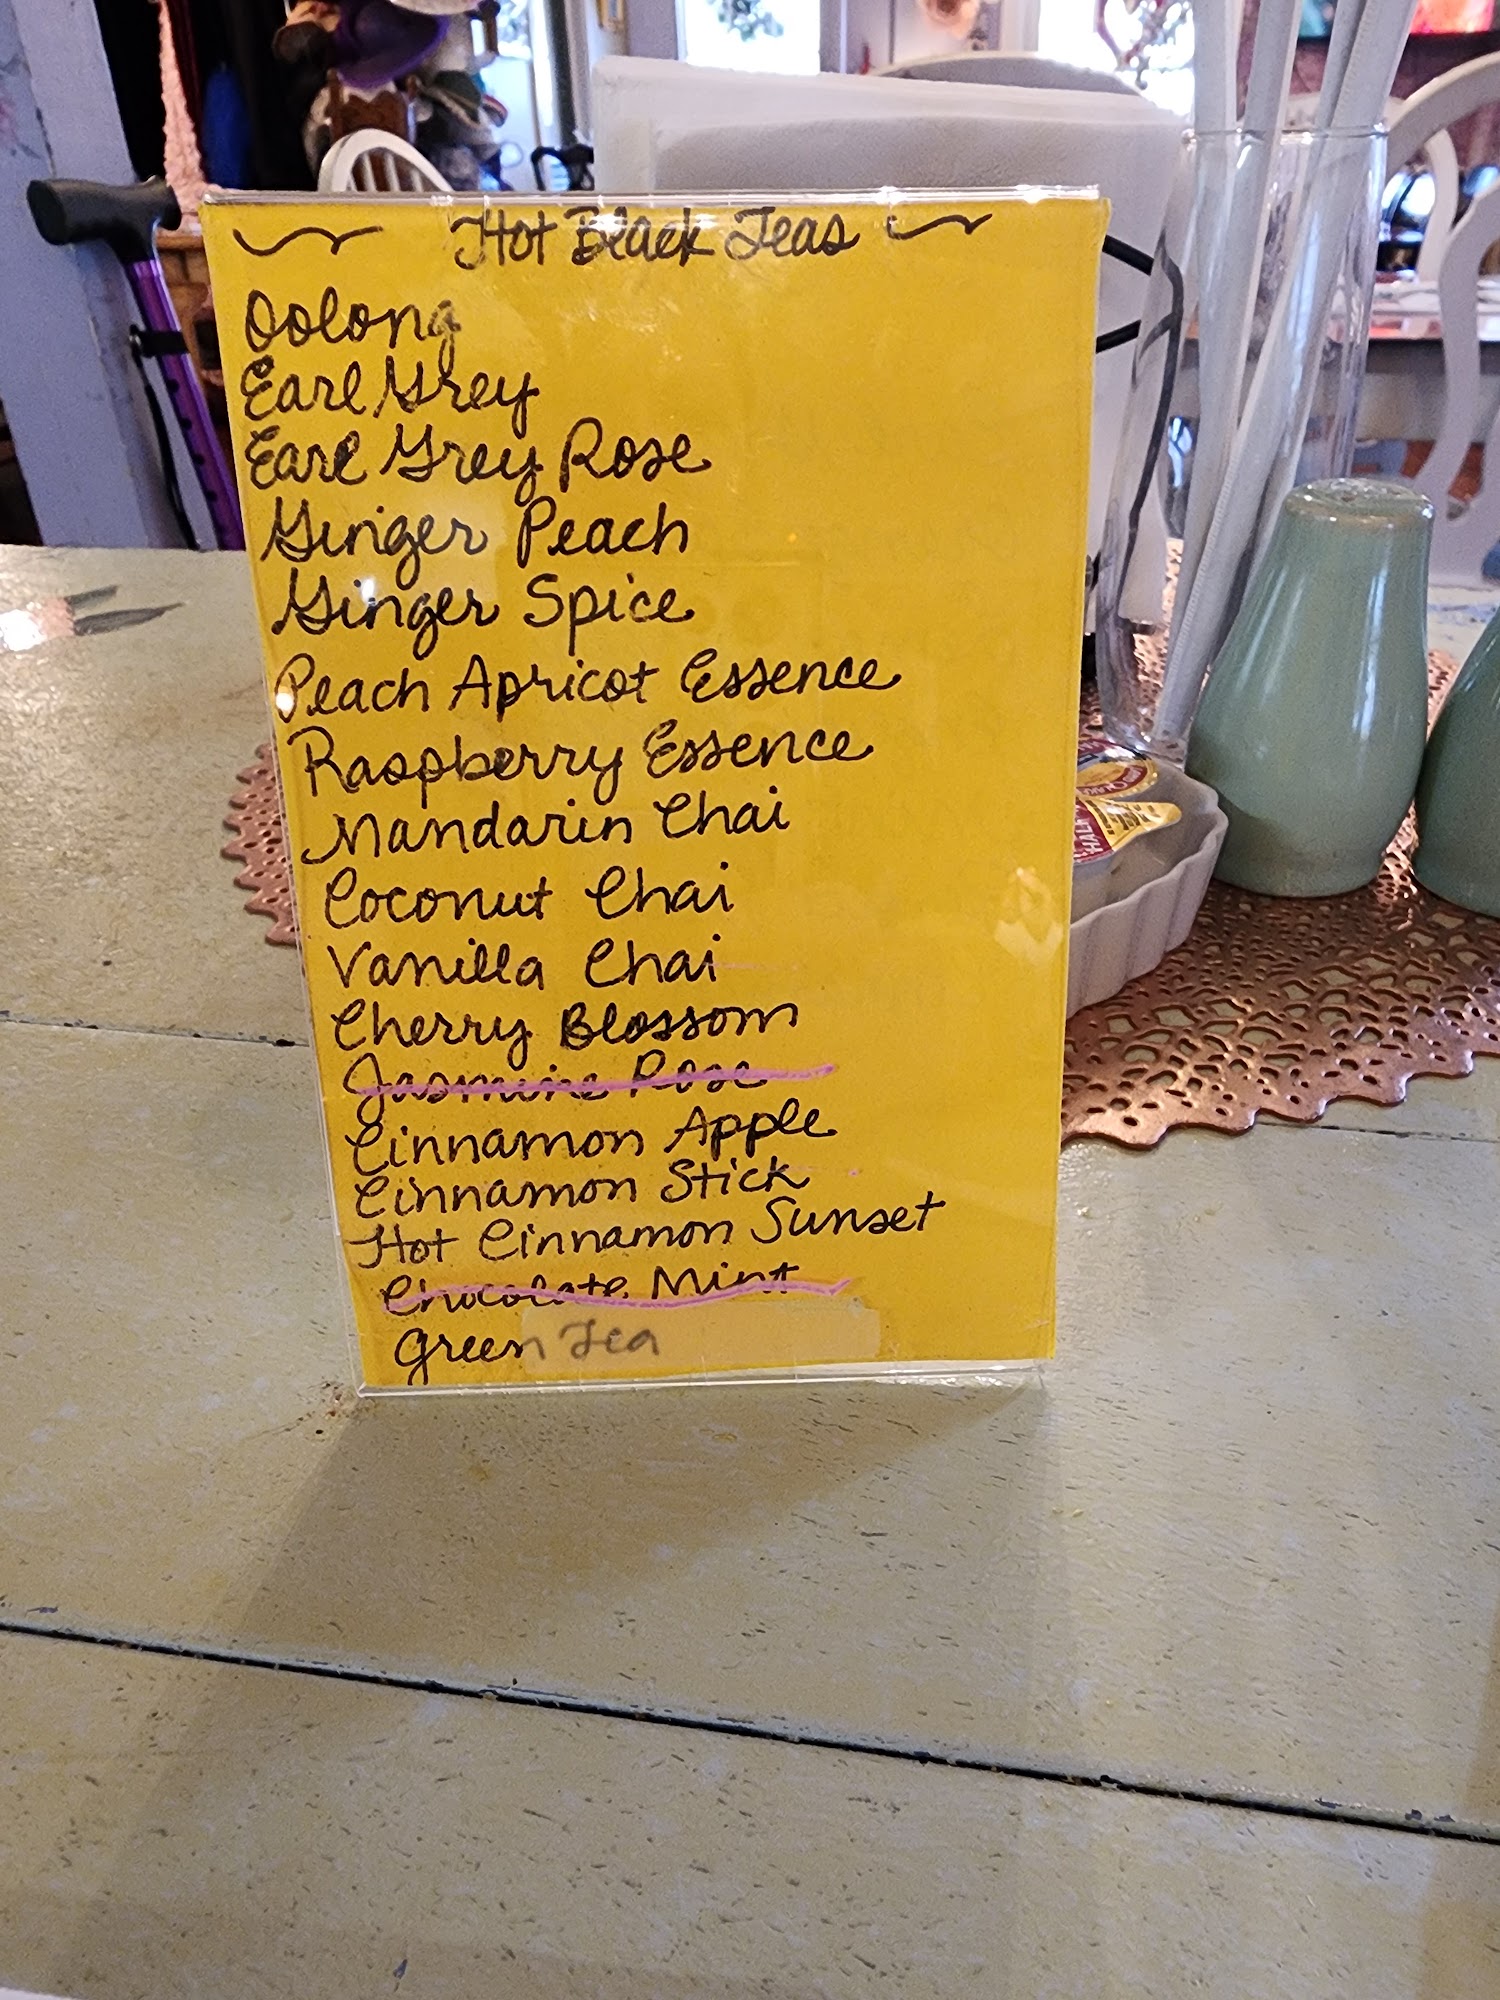 Hot Black Teas
Oolong
Earl Grey
Earl Grey Rose
Ginger Peach
Ginger Spice
Peach Apricot Essence
Raspberry Essence
Mandarin Chai
Coconut Chai
Vanilla Chai
Cherry Blossom
Jasmine Rose
Cinnamon Apple
Cinnamon Stick
Hot Cinnamon Sunset
Chocolate Mint
Green Tea
HALF